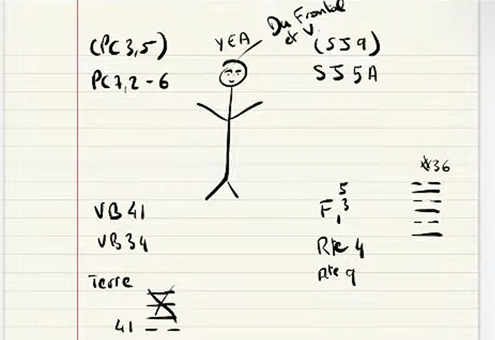 Du Frontal
et V.
YEA
(PC 3,5)
(SJ 9)
PC 7,2-6
SJ 5A
#36
5
F, 3
VB 41
VB 34
Rte 4
Rte 9
Terre
41